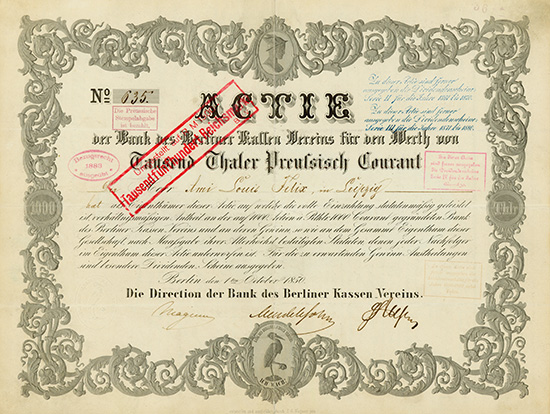 No 635.
ACTIE
der Bank des Berliner Kassen Vereins für den Werth von
Tausend Thaler Preussisch Courant
Herr Ami Louis Felix in Leipzig
hat als Eigenthümer dieser Actie auf welche die volle Einzahlung statutenmässig geleistet
ist verhältnissmässigen Antheil an der auf 1000 Actien à Rthlr 1000 Courant gegründeten Bank
des Berliner Kassen Vereins und an deren Gewinn so wie an dem Gesammt Eigenthum dieser
Gesellschaft nach Maassgabe ihrer Allerhöchst bestätigten Statuten denen jeder Nachfolger
im Eigenthum dieser Actie unterworfen ist Für die zu erwartenden Gewinn Austheilungen
sind besondere Dividenden Scheine ausgegeben.
Berlin den 1ten October 1850.
Die Direction der Bank des Berliner Kassen Vereins.
Magnus Mendelssohn
1000
Thlr
Tausendfünfhundert Reichsmark
Die Preussische
Stempelabgabe
ist bezahlt.
1883
Zu dieser Actie sind ferner
ausgegeben die Dividendenscheine
Zu dieser Actie sind ferner
ausgegeben die Dividendenscheine
Serie III für die Jahre